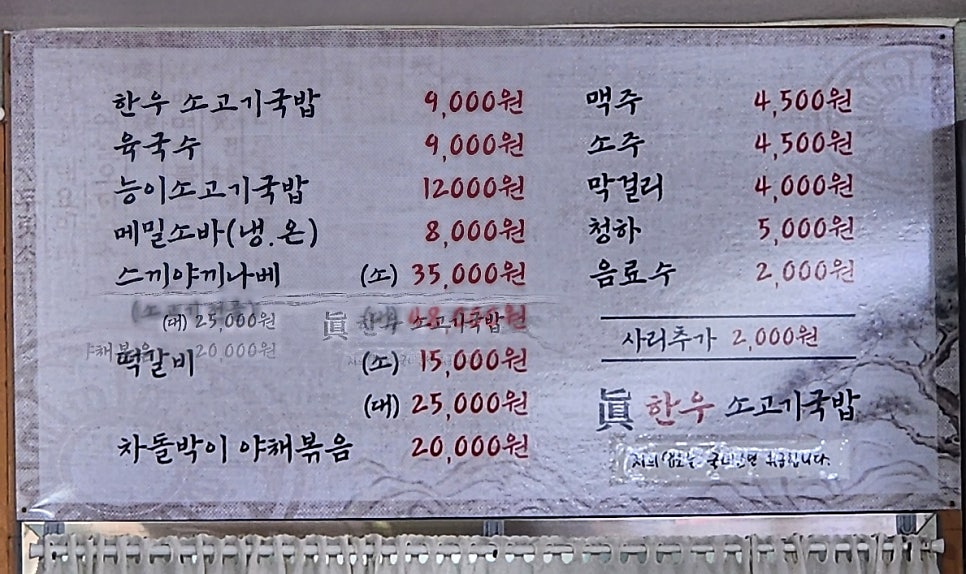 한우 소고기국밥 9,000원
육국수 9,000원
능이소고기국밥 12000원
메밀소바(냉.온) 8,000원
스끼야끼나베 (소) 35,000원
(대) 25,000원 眞 한우 소고기국밥
야채볶음 20,000원
떡갈비 (소) 15,000원
(대) 25,000원
차돌박이 야채볶음 20,000원
맥주 4,500원
소주 4,500원
막걸리 4,000원
청하 5,000원
음료수 2,000원
사리추가 2,000원
眞 한우 소고기국밥